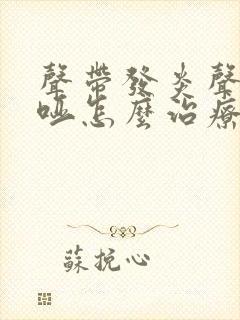 聲帶發炎聲
啞怎麼治療
蘇挽心